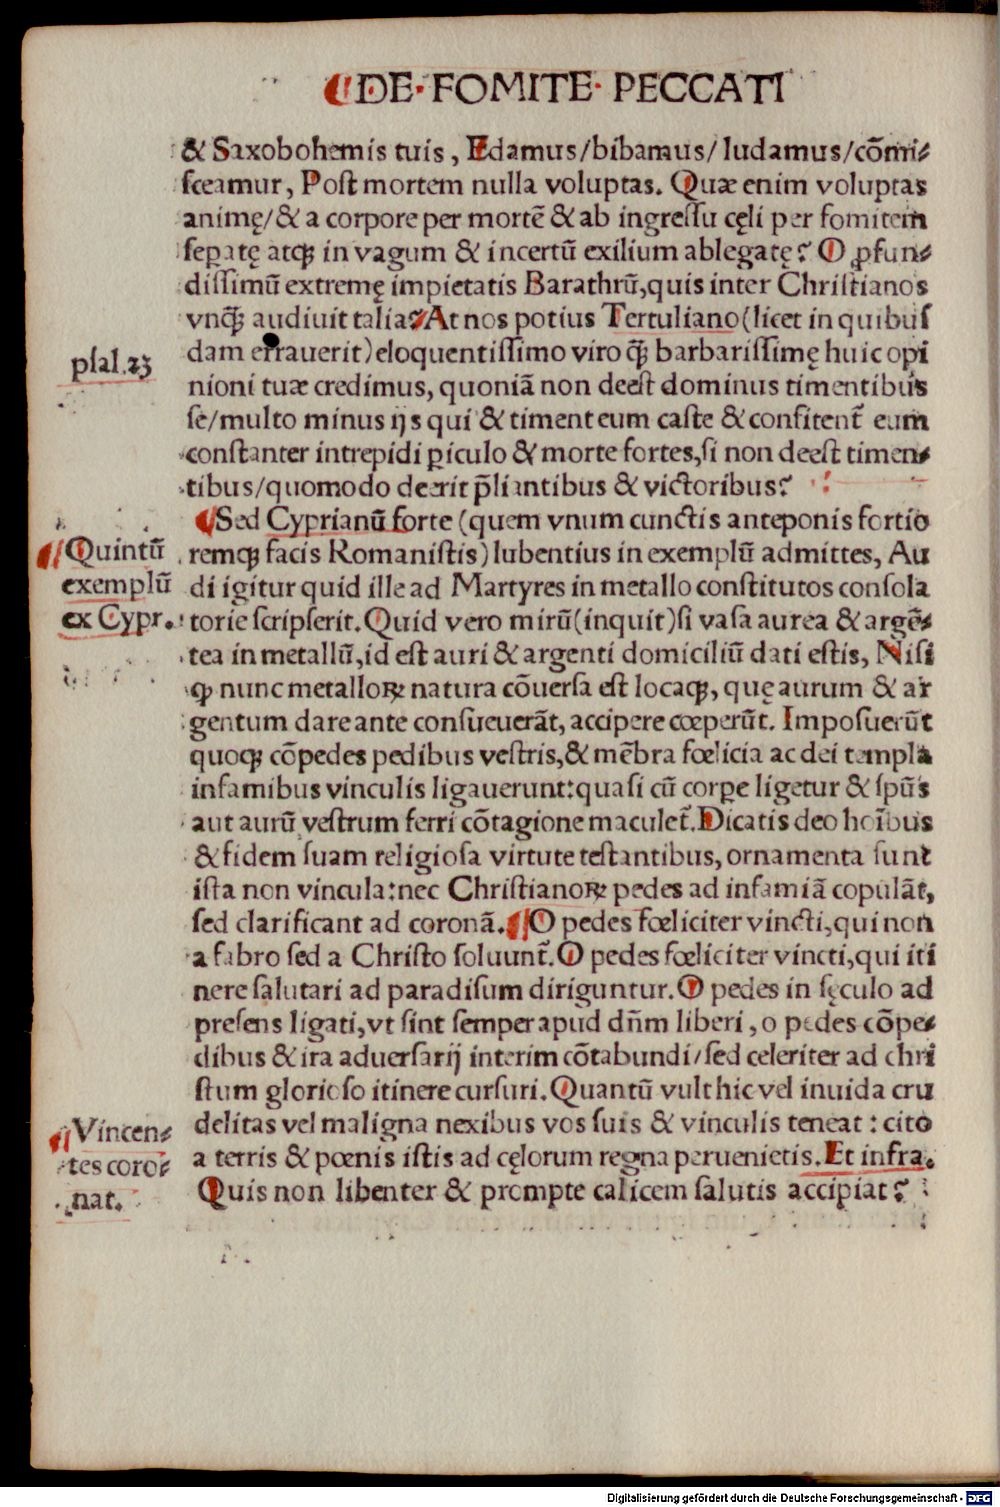 DE· FOMITE· PECCATI
& Saxobohemis tuis, Edamus/bibamus/ ludamus/cōmi⸗
ſceamur, Poſt mortem nulla voluptas. Quæ enim voluptas
animę/& a corpore per mortē & ab ingreſſu cęli per fomitem
ſepatę atqꝫ in vagum & incertū exilium ablegatę? O ꝓfun⸗
diſſimū extremę impietatis Barathrū,quis inter Chriſtianos
vnqꝫ audiuit talia? At nos potius Tertuliano(licet in quibuſ
dam errauerit)eloquentiſſimo viro qꝫ barbariſſimę huic opi
nioni tuæ credimus, quoniā non deeſt dominus timentibus
ſe/multo minus ijs qui & timent eum caſte & confitent̄ eum
conſtanter intrepidi ꝑiculo & morte fortes,ſi non deeſt timen⸗
tibus/quomodo deerit p̄liantibus & victoribus?
psal.23
Sed Cyprianū forte (quem vnum cunctis anteponis fortio
remqꝫ facis Romaniſtis) lubentius in exemplū admittes, Au
di igitur quid ille ad Martyres in metallo conſtitutos conſola
torie ſcripſerit. Quid vero mirū(inquit)ſi vaſa aurea & argē⸗
tea in metallū,id eſt auri & argenti domiciliū dati eſtis, Niſi
ꝙ nunc metalloꝝ natura cōuerſa eſt locaqꝫ, quę aurum & ar
gentum dare ante conſueuerāt, accipere cœperūt. Impoſuerūt
quoqꝫ cōpedes pedibus veſtris,& mēbra fœlicia ac dei templa
infamibus vinculis ligauerunt:quaſi cū corꝑe ligetur & ſpūs
aut aurū veſtrum ferri cōtagione maculet̄.Dicatis deo hoībus
& fidem ſuam religioſa virtute teſtantibus, ornamenta ſunt
iſta non vincula:nec Chriſtianoꝝ pedes ad infamiā copulāt,
ſed clarificant ad coronā. O pedes fœliciter vincti,qui non
a fabro ſed a Chriſto ſoluunt̄.O pedes fœliciter vincti,qui iti
nere ſalutari ad paradiſum diriguntur. O pedes in ſęculo ad
preſens ligati,vt ſint ſemper apud dn̄m liberi, o pedes cōpe⸗
dibus & ira aduerſarij interim cōtabundi/ſed celeriter ad chri
ſtum glorioſo itinere curſuri. Quantū vult hic vel inuida cru
delitas vel maligna nexibus vos ſuis & vinculis teneat : cito
a terris & pœnis iſtis ad cęlorum regna peruenietis. Et infra.
Quis non libenter & prompte calicem ſalutis accipiat?
Quintū
exemplū
ex Cypr.
Vincen⸗
tes coro⸗
nat.
Digitalisierung gefördert durch die Deutsche Forschungsgemeinschaft - DFG